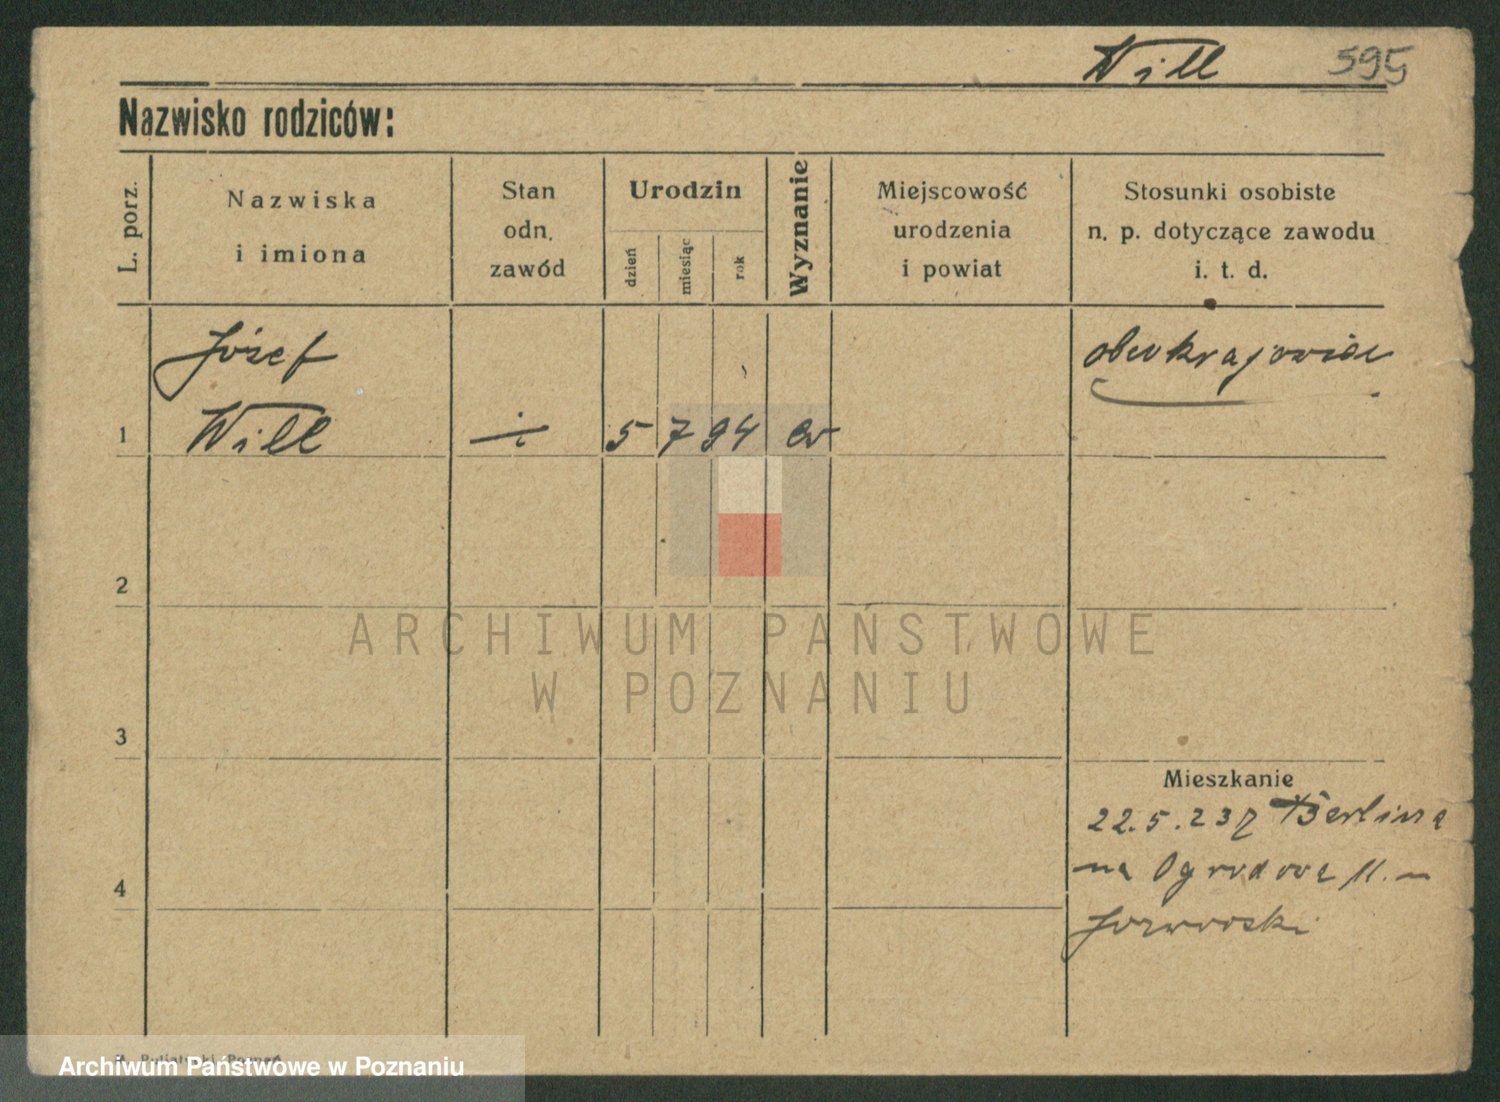 Will 595
Nazwisko rodziców:
L. porz.
Nazwiska
i imiona
Stan
odn.
zawód
Urodzin
dzień
miesiąc
rok
Wyznanie
Miejscowość
urodzenia
i powiat
Stosunki osobiste
n. p. dotyczące zawodu
i. t. d.
Józef
Will
1
5 7 94 ew
obcokrajowiec
2
ARCHIWUM PAŃSTWOWE
W POZNANIU
3
4
Mieszkanie
22.5.23 z Berlina
na Ogrodowa 11.
Poznań
Archiwum Państwowe w Poznaniu